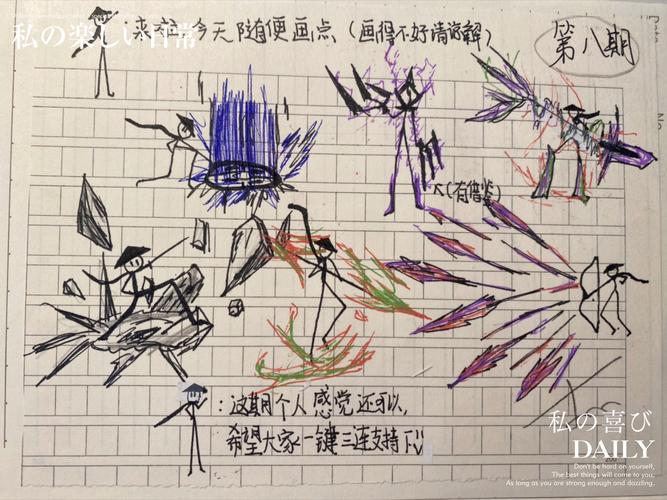 私の楽しい日常
来啦今天随便画点(画得不好请谅解)
第八期
(有借鉴)
:这期个人感觉还可以,
希望大家一键三连支持下!!
私の喜び
DAILY
Don't be hard on yourself,
The best things will come to you,
As long as you are strong enough and dazzling.